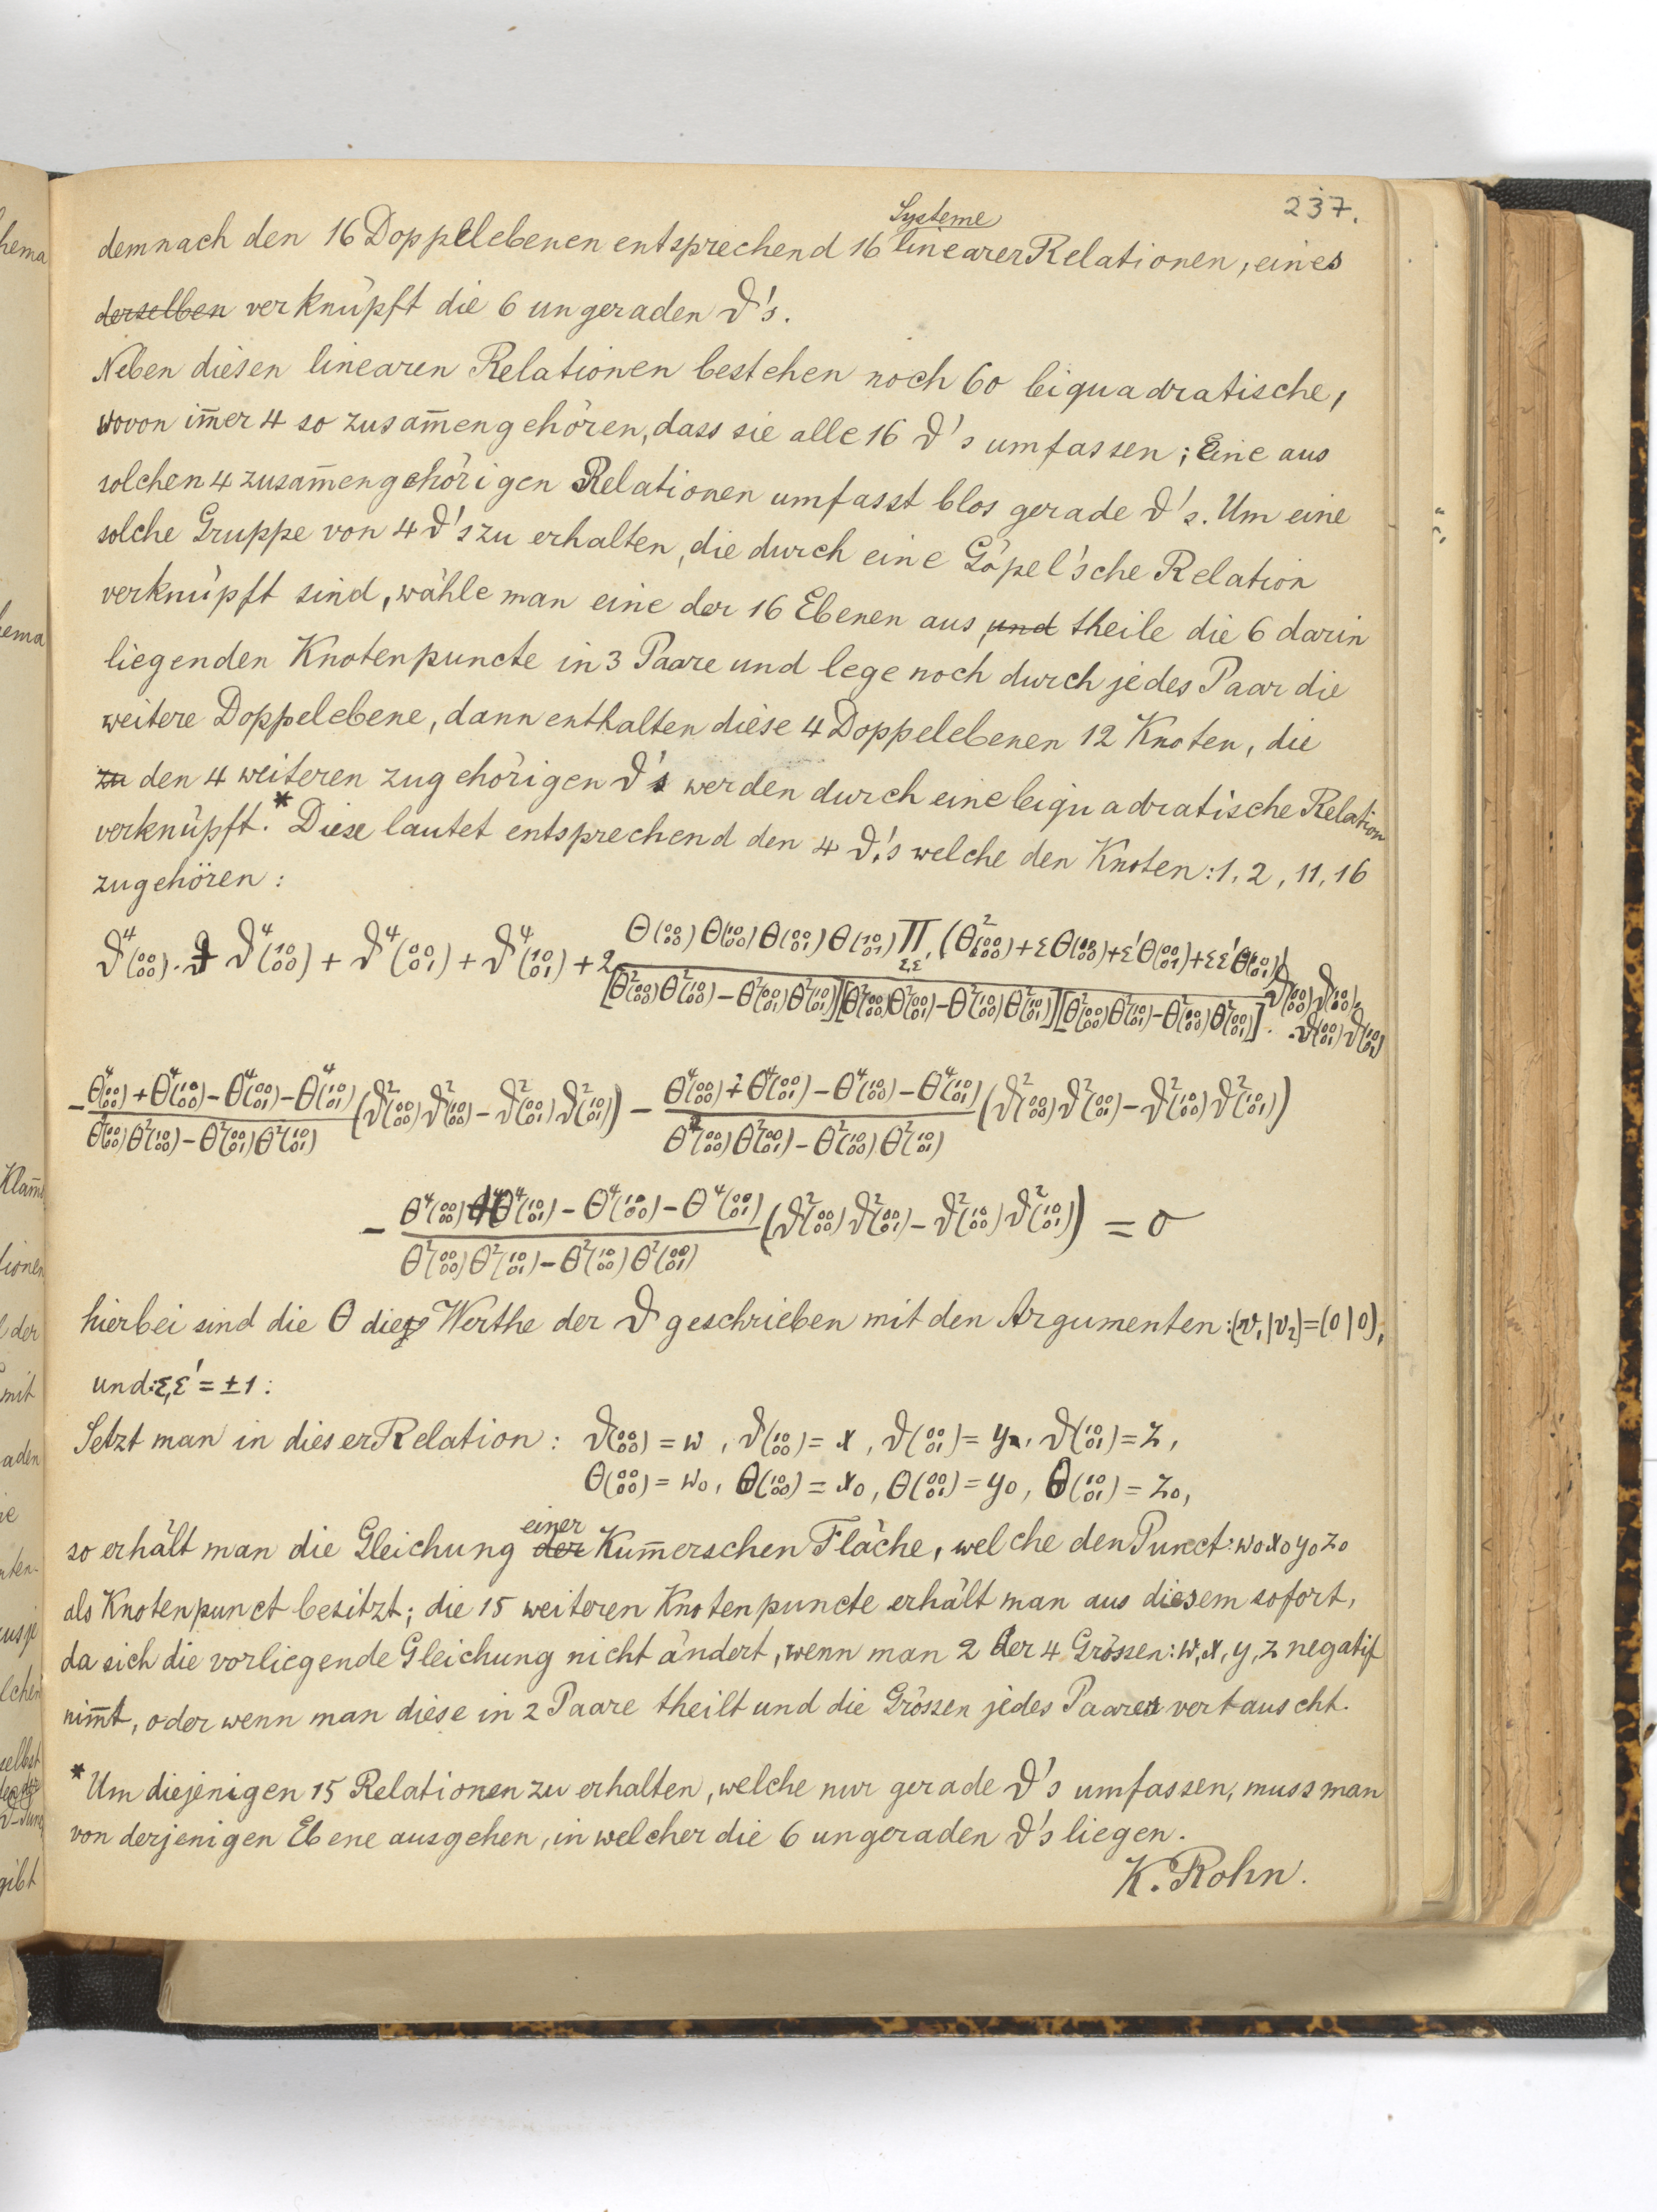 237.
demnach den 16 Doppelebenen entsprechend 16 Systeme linearer Relationen, eines
derselben verknüpft die 6 ungeraden ϑ's.
Neben diesen linearen Relationen bestehen noch 60 biquadratische,
wovon im̄er 4 so zusam̄engehören, dass sie alle 16 ϑ's umfassen; Eine aus
solchen 4 zusam̄engehörigen Relationen umfasst blos gerade ϑ's. Um eine
solche Gruppe von 4 ϑ's zu erhalten, die durch eine Göpel'sche Relation
verknüpft sind, wähle man eine der 16 Ebenen aus, und theile die 6 darin
liegenden Knotenpuncte in 3 Paare und lege noch durch jedes Paar die
weitere Doppelebene, dann enthalten diese 4 Doppelebenen 12 Knoten, die
zu den 4 weiteren zugehörigen ϑ's werden durch eine biquadratische Relation
verknüpft.* Diese lautet entsprechend den 4 ϑ's welche den Knoten: 1, 2, 11, 16
zugehören:
ϑ⁴(00/00) + ϑ⁴(10/00) + ϑ⁴(00/01) + ϑ⁴(10/01) + 2 Θ(00/00) Θ(10/00) Θ(00/01) Θ(10/01) Π_{ε,ε'} (Θ²(00/00) + εΘ(10/00) + ε'Θ(00/01) + εε'Θ(10/01))
[Θ²(00/00)Θ²(10/00) − Θ²(00/01)Θ²(10/01)] [Θ²(00/00)Θ²(00/01) − Θ²(10/00)Θ²(10/01)] [Θ²(00/00)Θ²(10/01) − Θ²(10/00)Θ²(00/01)] · ϑ(00/00) ϑ(10/00) · ϑ(00/01) ϑ(10/01)
− (Θ⁴(00/00) + Θ⁴(10/00) − Θ⁴(00/01) − Θ⁴(10/01)) / (Θ²(00/00)Θ²(10/00) − Θ²(00/01)Θ²(10/01)) (ϑ²(00/00)ϑ²(10/00) − ϑ²(00/01)ϑ²(10/01)) − (Θ⁴(00/00) + Θ⁴(00/01) − Θ⁴(10/00) − Θ⁴(10/01)) / (Θ²(00/00)Θ²(00/01) − Θ²(10/00)Θ²(10/01)) (ϑ²(00/00)ϑ²(00/01) − ϑ²(10/00)ϑ²(10/01))
− (Θ⁴(00/00) + Θ⁴(10/01) − Θ⁴(10/00) − Θ⁴(00/01)) / (Θ²(00/00)Θ²(10/01) − Θ²(10/00)Θ²(00/01)) (ϑ²(00/00)ϑ²(00/01) − ϑ²(10/00)ϑ²(10/01)) = 0
hierbei sind die Θ die Werthe der ϑ geschrieben mit den Argumenten: (v₁|v₂) = (0|0),
und: ε, ε' = ±1:
Setzt man in dieser Relation: ϑ(00/00) = w, ϑ(10/00) = x, ϑ(00/01) = y, ϑ(10/01) = z,
Θ(00/00) = w₀, Θ(10/00) = x₀, Θ(00/01) = y₀, Θ(10/01) = z₀,
so erhält man die Gleichung der einer Kum̄erschen Fläche, welche den Punct: w₀x₀y₀z₀
als Knotenpunct besitzt; die 15 weiteren Knotenpuncte erhält man aus diesem sofort,
da sich die vorliegende Gleichung nicht ändert, wenn man 2 der 4 Grössen: w, x, y, z negatif
nim̄t, oder wenn man diese in 2 Paare theilt und die Grössen jedes Paares vertauscht.
* Um diejenigen 15 Relationen zu erhalten, welche nur gerade ϑ's umfassen, muss man
von derjenigen Ebene ausgehen, in welcher die 6 ungeraden ϑ's liegen.
K. Rohn.